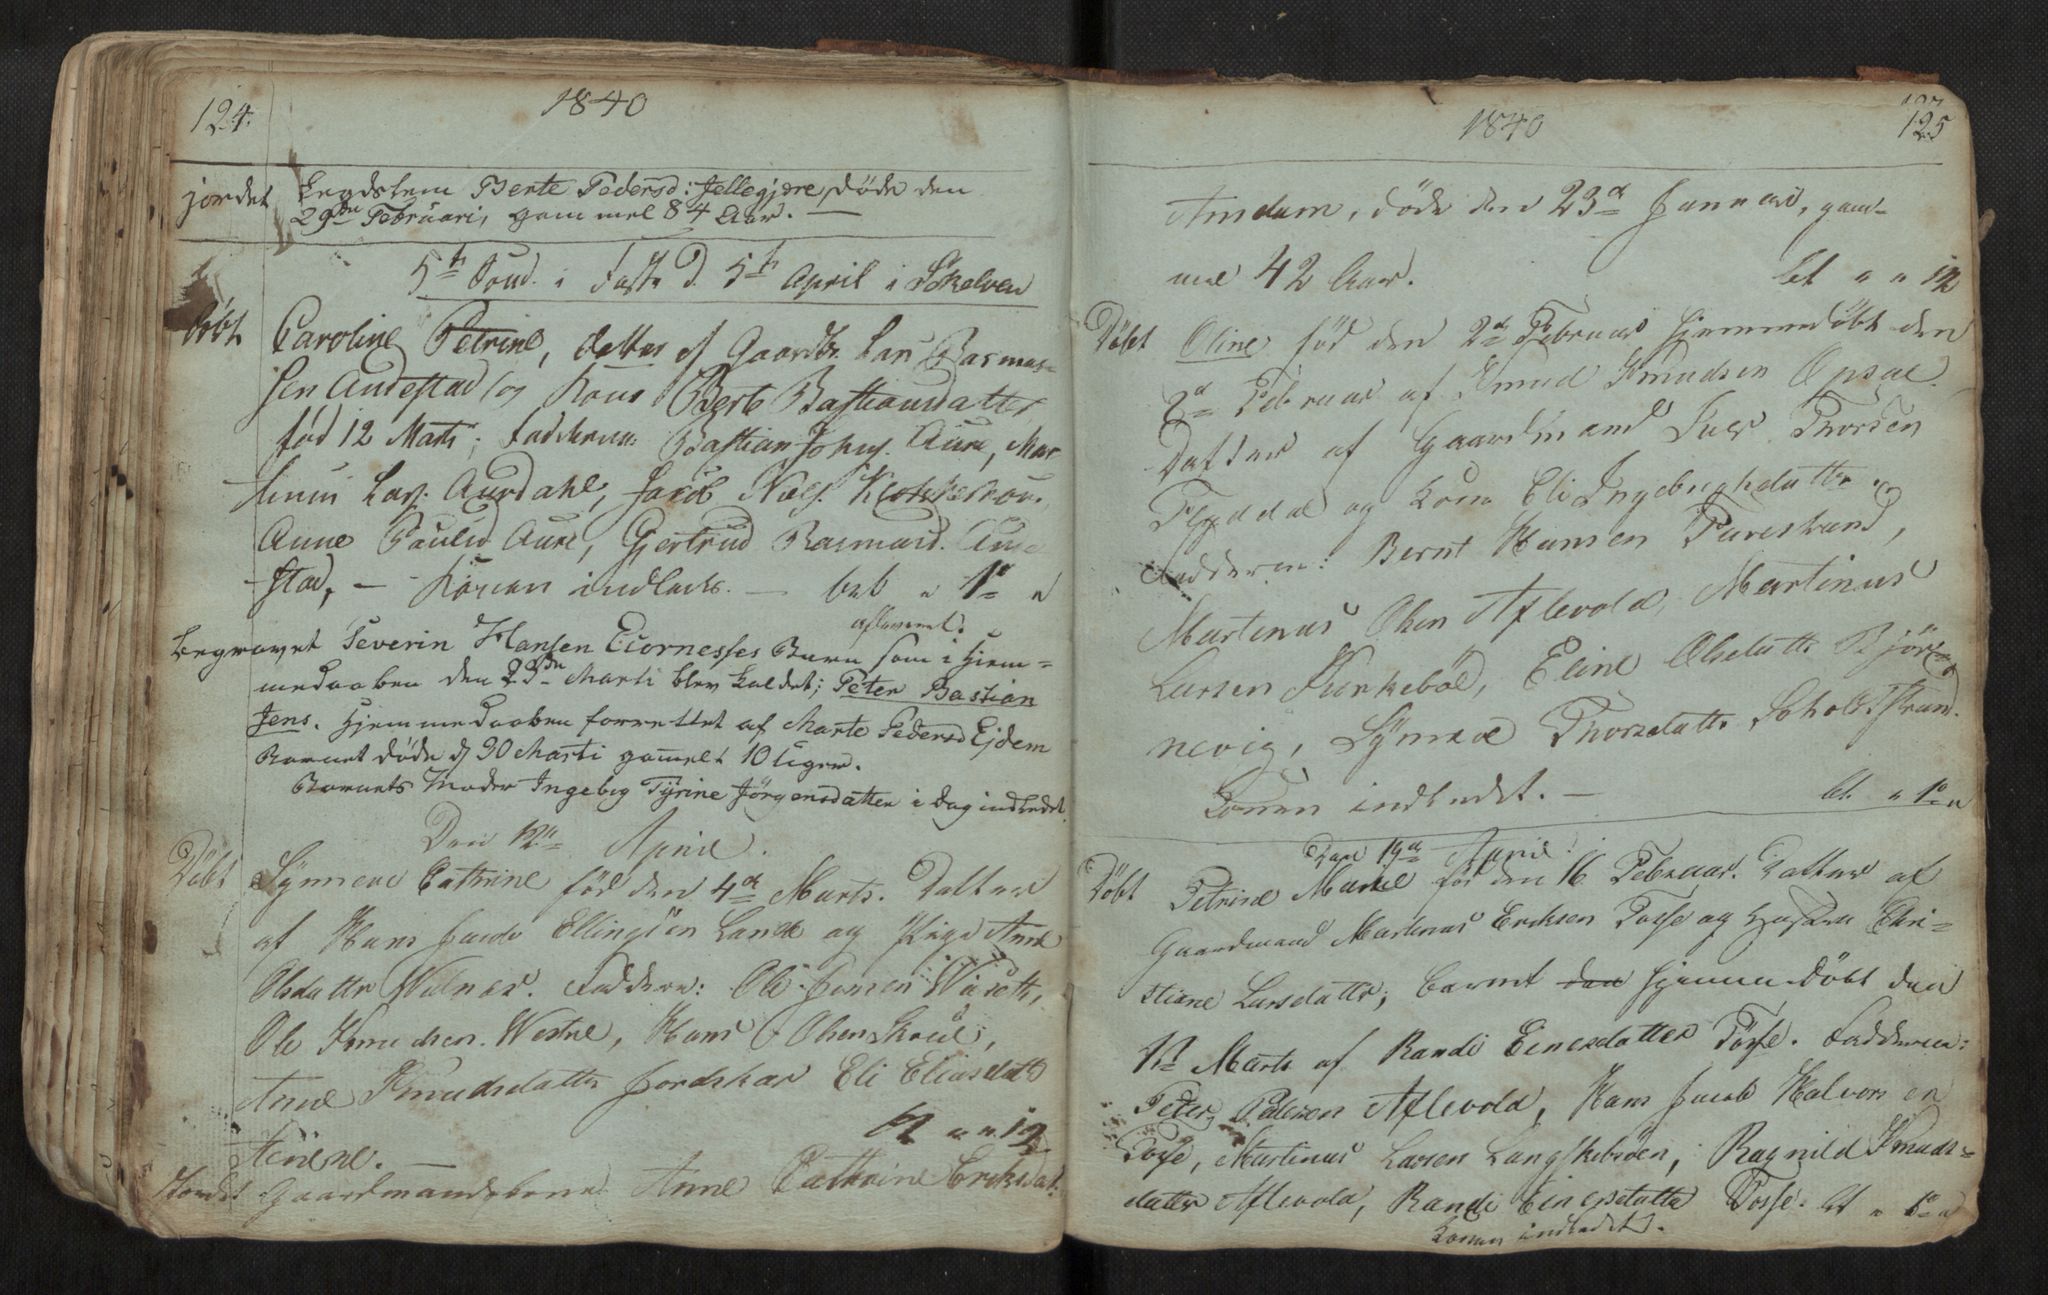 124.
1840
jordet Legdslem Berte Pedersd: Jellegjøre, døde den
29de Februari, gammel 84 Aar. —
5te Sønd. i Faste d. 5te April i Skelven
Døbt Caroline Petrine, datter af Gaardbr. Lars Rasmus-
sen Aurestad og Kone Berte Bastiansdatter
fød 12 Marts; Fadderne: Bastian Johns. Aure, Mar-
tinus Lars. Aurdahl, Jacob Niels.
Anne Paulsd Aure, Gjertrud Rasmusd. Aure
stad, — Konen indledt. — bet " 1 "
afleveret.
Begravet Severin Hansen Eiornesses Barn som i Hjem-
medaaben den 23de Marti blev kaldet; Peter Bastian
Jens. Hjemmedaaben forrettet af Marte Pedersd Ejdem
Barnet døde d 30 Marti gamelt 10 Uger.
Barnets Moder Ingebrg Tyrine Jørgensdatter i Dag indledet.
Den 12te April.
Døbt Synneve Cathrine fød den 4de Marts. Datter
af Hans Jacob Ellingsen Lande og Pige Ane
Olsdatter Walnes. Faddere: Ole Jensen Wiseth,
Ole Knudsen Westre, Hans Olsen Skeul,
Anne Knudsdatter Jordskar Eli Eliasdatt
Aurene. — bet " " 12
Jordet Gaardmandskone Anne Cathrine Eriksdat:
1840
125
Amdam, døde den 23de Januar, gam-
mel 42 Aar. bet " " 12
Døbt Oline fød den 2de Februar hjemmedøbt den
8de Februar af Knud Knudsen Opsal.
Datter af Gaardmand Iver Thorsen
Flydal og Kone Eli Ingebrigtsdatter.
Fadderne: Bernt Hansen Furestrand,
Martinus Olsen Aflevold, Martinus
Larsen Kurkebøl, Eline Olsdatter Bjør-
nevig, Synneve Thorsdatter Soholtstrand.
Konen indledet. — bt. " 1 "
Den 19de April.
Døbt Petrine Marie fød den 16 Februar. Datter af
Gaardmand Martinus Eriksen Tosse og Hustru Chri-
stiane Larsdatter; Barnet den hjemmedøbt den
12 Marts af Randi Einersdatter Tosse. Fadderne:
Peter Petersen Aflevold, Hans Jacob Halvorsen
Tosse, Martinus Larsen Langskibsøen, Ragnild Knuds-
datter Aflevold, Randi Einersdatter Tosse. bt " 1 "
Konen indledet.